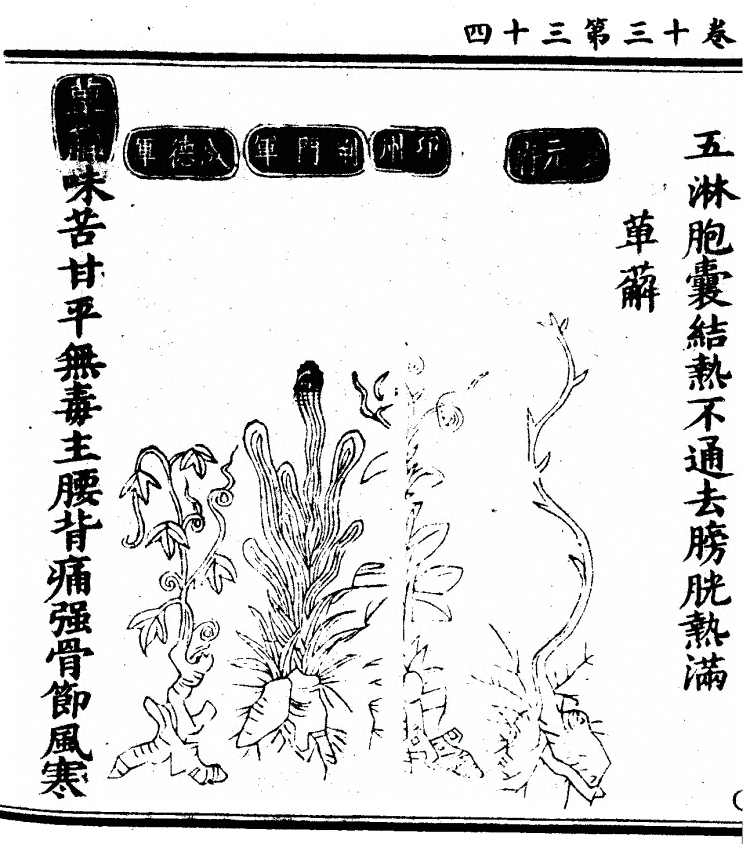 卷十三第三十四
五淋胞囊結熱不通去膀胱熱滿
萆薢
興元府
邛州
荊門軍
成德軍
萆薢味苦甘平無毒主腰背痛强骨節風寒